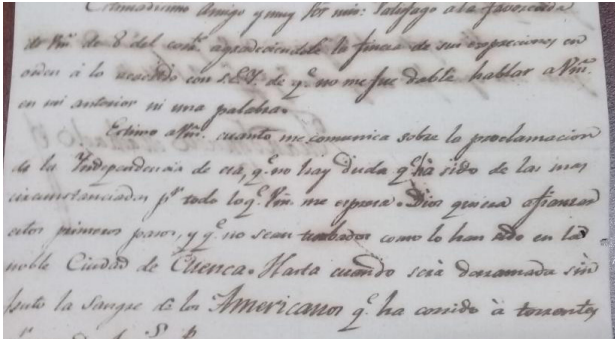 Estimadisimo Amigo y muy Sor mio: Satisfago a la favorecida
de Vm. de 8 del corte. agradeciendole la fineza de sus expresiones en
orden á lo acaecido con S.E.Y. de q.e no me fue dable hablar a Vm.
en mi anterior ni una palabra.
Estimo a Vm. cuanto me comunica sobre la proclamacion
de la Independencia de esa, q.e no hay duda q.e ha sido de las mas
circunstanciadas p.r todo lo q.e Vm. me expresa. Dios quiera afianzar
estos primeros pasos, y q.e no sean trabados como lo han sido en la
noble Ciudad de Cuenca. Hasta cuando será derramada sin
fruto la Sangre de los Americanos q.e ha corrido à torrentes